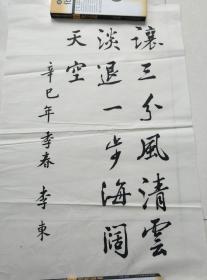 讓三分風清雲
淡退一步海阔
天空
辛巳年季春 李東